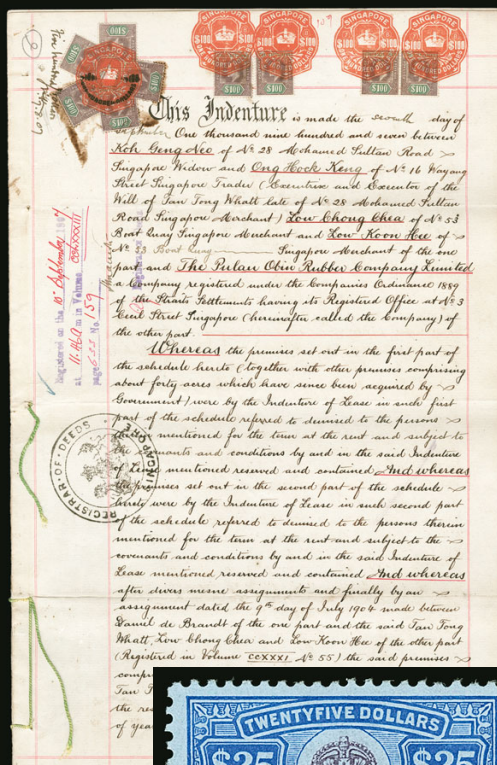 SINGAPORE SINGAPORE SINGAPORE SINGAPORE
$100 $100 $100 $100 $100 $100 $100 $100
159
SINGAPORE
$100
This Indenture is made the seventh day of
September One thousand nine hundred and seven between
Koh Geng Neo of No 28 Mohamed Sultan Road
Singapore Widow and Ong Hock Keng of No 16 Wayang
Street Singapore Trader (Executrix and Executor of the
Will of Tan Tong Whatt late of No 28 Mohamed Sultan
Road Singapore Merchant) Low Chong Chea of No 53
Boat Quay Singapore Merchant and Low Koon Hee of
No 3 Boat Quay Singapore Merchant of the one
part and The Pulau Obin Rubber Company Limited
a Company registered under the Companies Ordinance 1889
of the Straits Settlements having its Registered Office at No 3
Cecil Street Singapore (hereinafter called the Company) of
the other part.
Whereas the premises set out in the first part of
the schedule hereto (together with other premises comprising
about forty acres which have since been acquired by
Government) were by the Indenture of Lease in such first
part of the schedule referred to demised to the persons
mentioned for the term at the rent and subject to
the covenants and conditions by and in the said Indenture
of Lease mentioned reserved and contained And whereas
the premises set out in the second part of the schedule
hereto were by the Indenture of Lease in such second part
of the schedule referred to demised to the persons therein
mentioned for the term at the rent and subject to the
covenants and conditions by and in the said Indenture of
Lease mentioned reserved and contained And whereas
after divers mesne assignments and finally by an
assignment dated the 9th day of July 1904 made between
Daniel de Brandt of the one part and the said Tan Tong
Whatt, Low Chong Chea and Low Koon Hee of the other part
(Registered in Volume CCXXXI No 55) the said premises
Tan
the
of
Registered on the 10 September 1907
at 11.46 a m in Volume CCLXXXIII
page 633 No. 159
REGISTRAR OF DEEDS SINGAPORE
TWENTYFIVE DOLLARS
$25 $25